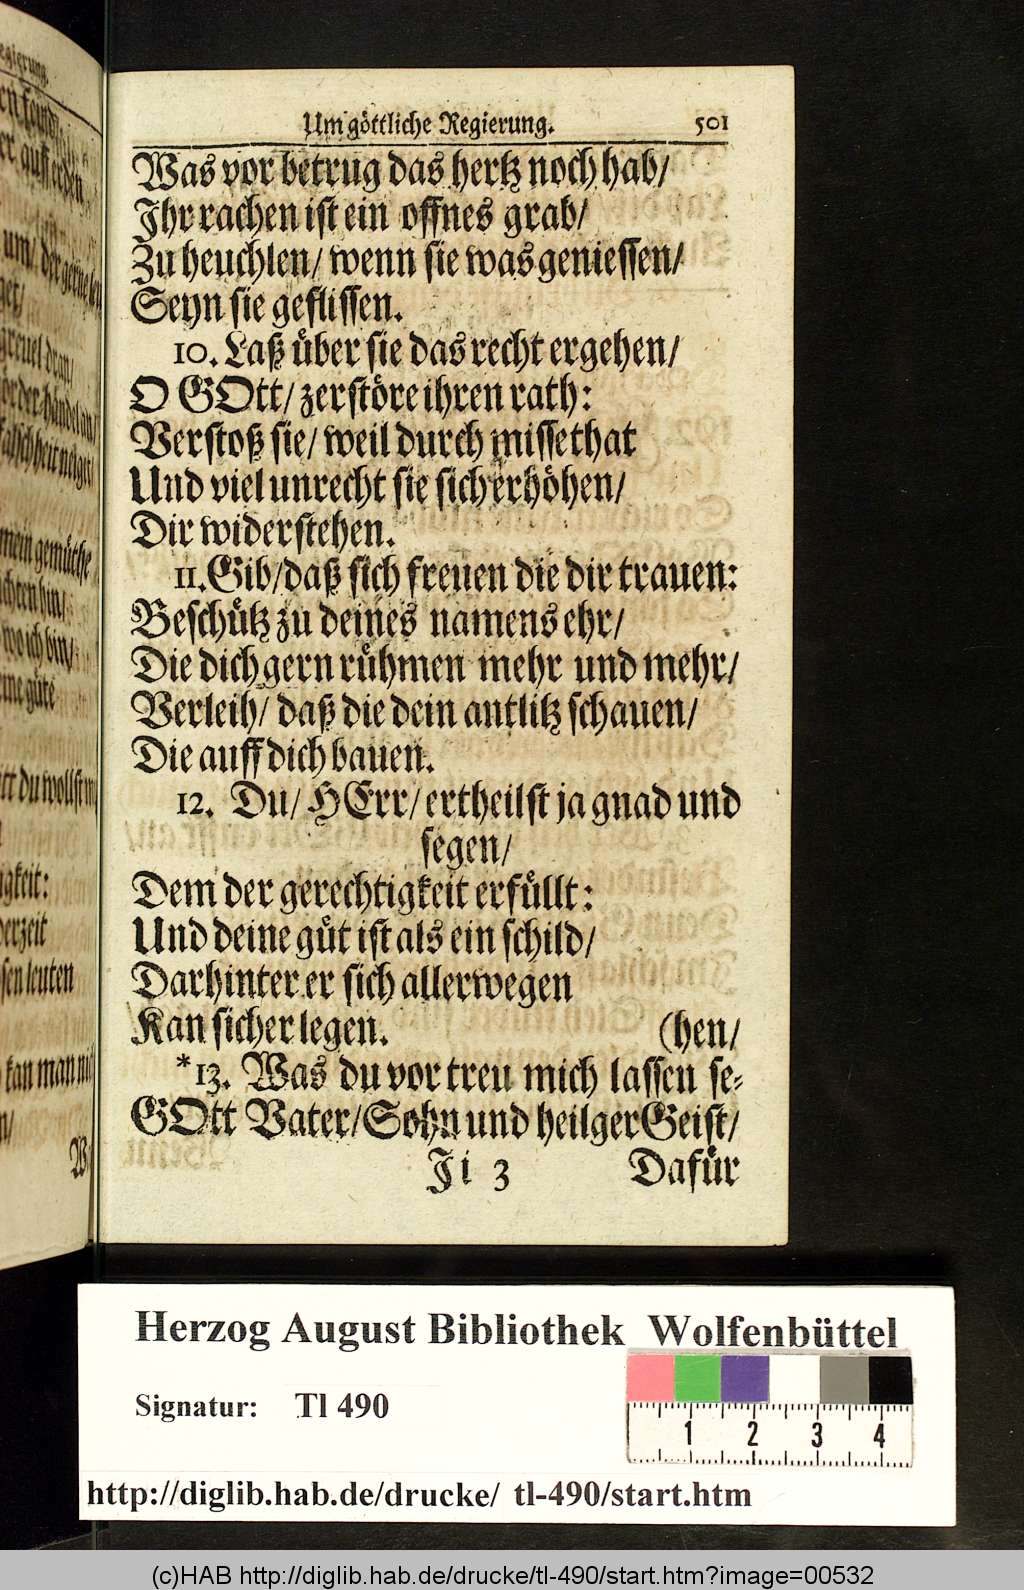 Um göttliche Regierung. 501
Was vor betrug das hertz noch hab/
Jhr rachen ist ein offnes grab/
Zu heuchlen/ wenn sie was geniessen/
Seyn sie geflissen.
10. Laß uͤber sie das recht ergehen/
O GOtt/ zerstöre ihren rath:
Verstoß sie/ weil durch missethat
Und viel unrecht sie sich erhöhen/
Dir widerstehen.
11. Gib/ daß sich freuen die dir trauen:
Beschuͤtz zu deines namens ehr/
Die dich gern ruͤhmen mehr und mehr/
Verleih/ daß die dein antlitz schauen/
Die auff dich bauen.
12. Du/ HErr/ ertheilst ja gnad und
segen/
Dem der gerechtigkeit erfuͤllt:
Und deine guͤt ist als ein schild/
Darhinter er sich allerwegen
Kan sicher legen. (hen/
*13. Was du vor treu mich lassen se-
GOtt Vater/ Sohn und heilger Geist/
Ji 3 Dafür
egierung.
auff erden
um/ der gerne
greuel dran/
der handel an/
falschheit
mein gemüthe
bin/
wo ich bin/
güte
du wollst
igkeit:
derzeit
sen leuten
kan man
W
Herzog August Bibliothek Wolfenbüttel
Signatur: Tl 490
1 2 3 4
http://diglib.hab.de/drucke/ tl-490/start.htm
(c)HAB http://diglib.hab.de/drucke/tl-490/start.htm?image=00532